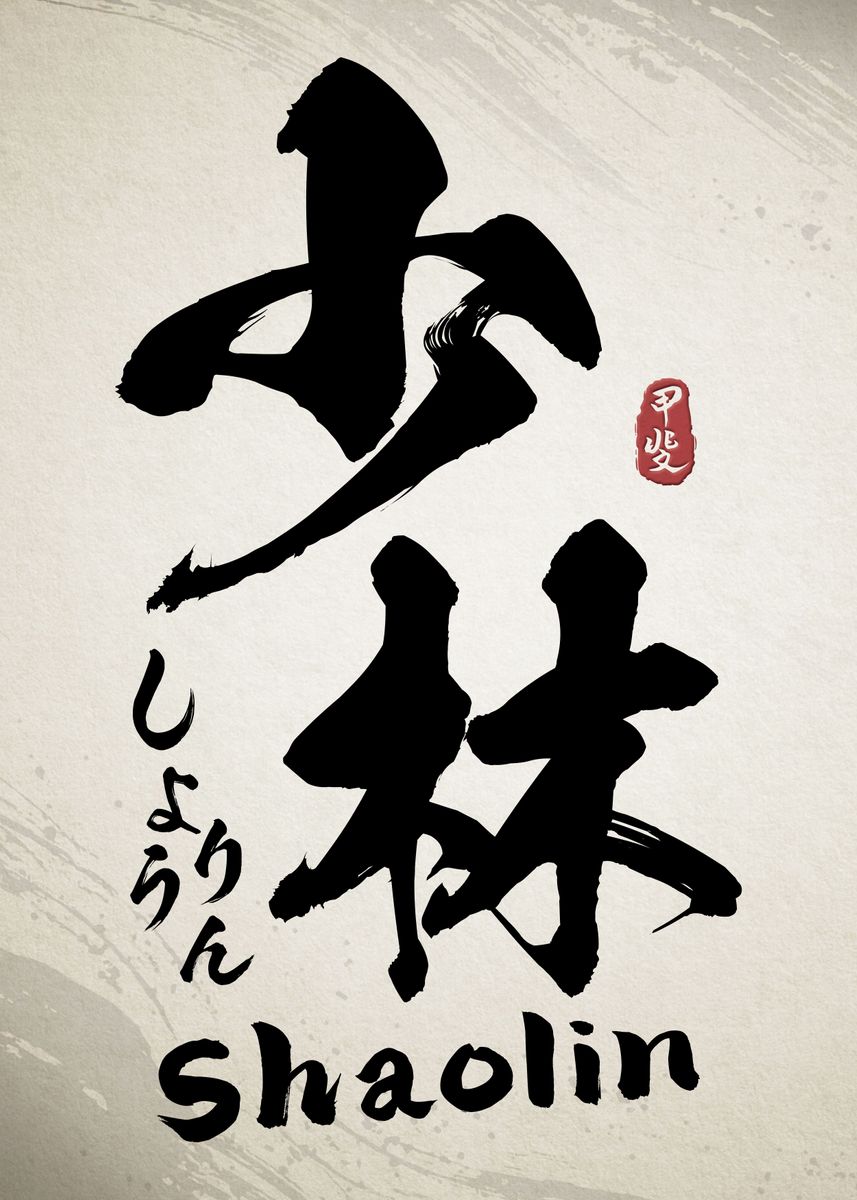 少林
甲斐
しょう
りん
Shaolin